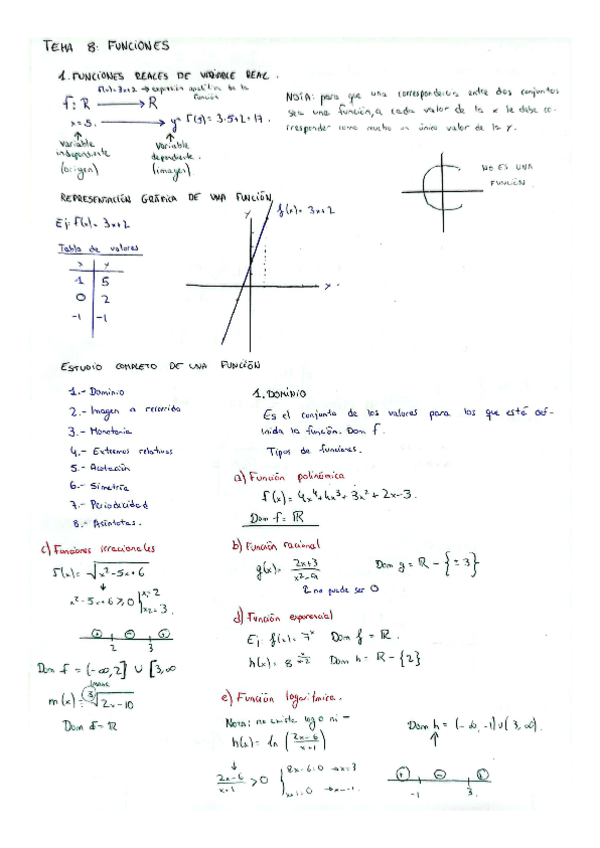 TEMA 8: FUNCIONES
1. FUNCIONES REALES DE VARIABLE REAL.
f(x)=3x+2 → expresión analítica de la función
f: R → R
x=5. → y= f(5)= 3·5+2=17.
variable independiente (origen)
variable dependiente. (imagen)
NOTA: para que una correspondencia entre dos conjuntos
sea una función, a cada valor de la x le debe co-
rresponder como mucho un único valor de la y.
NO ES UNA
FUNCIÓN.
REPRESENTACIÓN GRÁFICA DE UNA FUNCIÓN
Ej: f(x)= 3x+2
y
f(x)= 3x+2
x
Tabla de valores
x y
1 5
0 2
-1 -1
ESTUDIO COMPLETO DE UNA FUNCIÓN
1.- Dominio
2.- Imagen o recorrido
3.- Monotonía
4.- Extremos relativos
5.- Acotación
6.- Simetría
7.- Periodicidad
8.- Asíntotas.
1. DOMINIO
Es el conjunto de los valores para los que está defi-
nida la función. Dom f.
Tipos de funciones.
a) Función polinómica
f(x)= 4x⁴+4x³+3x²+2x-3.
Dom f= R
b) Función racional
g(x)= (2x+3)/(x²-9)
Dom g= R - {±3}
no puede ser 0
c) Funciones irracionales
f(x)= √(x²-5x+6)
x²-5x+6 ≥ 0
x=2
x2=3.
+ - +
2 3
Dom f = (-∞,2] ∪ [3,∞
m(x)= ³√(2x-10)
Dom f= R
d) Función exponencial
Ej: f(x)= 7ˣ Dom f = R.
h(x)= 8^(x/(x-2)) Dom h= R-{2}
e) Función logarítmica.
Nota: no existe log 0 ni -
h(x)= ln ((2x-6)/(x+1))
Dom h= (-∞,-1)∪(3,∞).
(2x-6)/(x+1) > 0
2x-6=0 → x=3
x+1=0 → x=-1.
+ - +
-1 3.